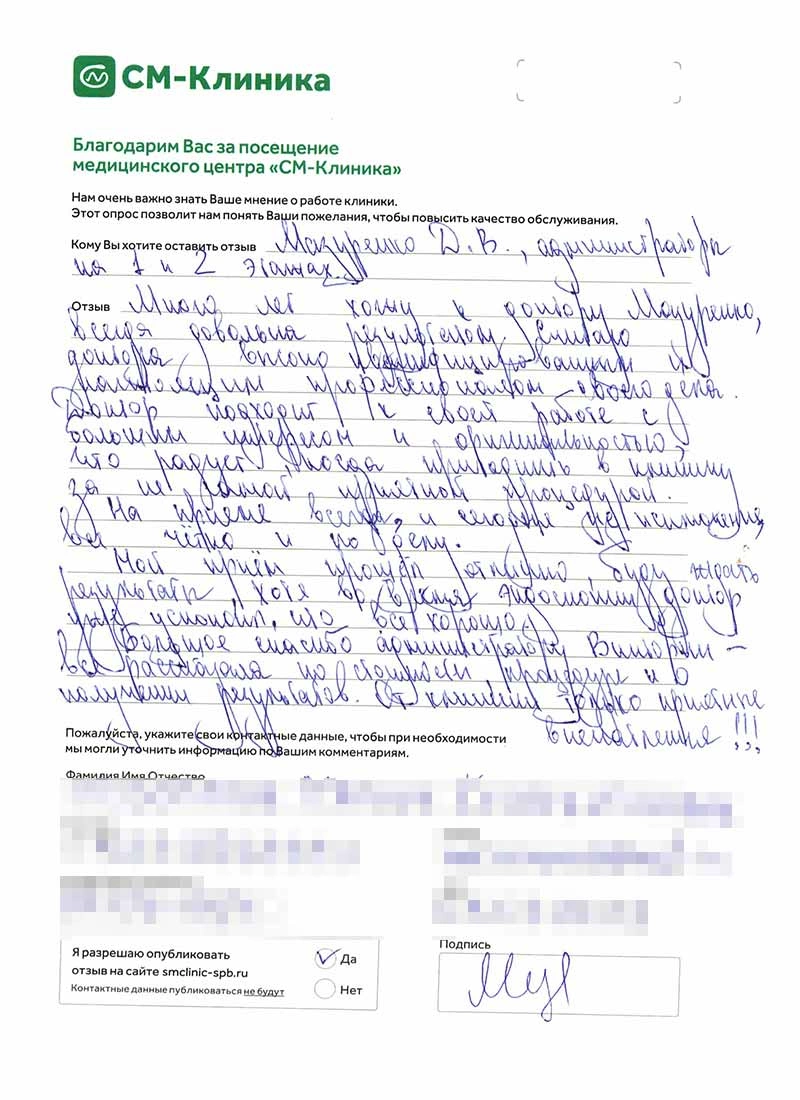 СМ-Клиника
Благодарим Вас за посещение
медицинского центра «СМ-Клиника»
Нам очень важно знать Ваше мнение о работе клиники.
Этот опрос позволит нам понять Ваши пожелания, чтобы повысить качество обслуживания.
Кому Вы хотите оставить отзыв Мазуренко Д.В., администраторы
на 1 и 2 этажах.
Отзыв Много лет хожу к доктору Мазуренко,
всегда довольна результатом. Считаю
доктора высоко квалифицированным и
настоящим профессионалом своего дела.
Доктор подходит к своей работе с
большим интересом и
что радует, когда приходишь в клинику
за не самой приятной процедурой.
На приеме всегда, и сегодня не исключение,
всё четко и по делу.
Мой приём прошёл отлично, буду ждать
результаты, хотя во время эндоскопии доктор
уже успокоил, что всё хорошо.
Большое спасибо администратору Виктории –
всё рассказала по стоимости, процедуре и о
получении результатов. От клиники только приятные
впечатления!!!
Пожалуйста, укажите свои контактные данные, чтобы при необходимости
мы могли уточнить информацию по Вашим комментариям.
Фамилия Имя Отчество
Я разрешаю опубликовать
отзыв на сайте smclinic-spb.ru
Контактные данные публиковаться не будут
Да
Нет
Подпись